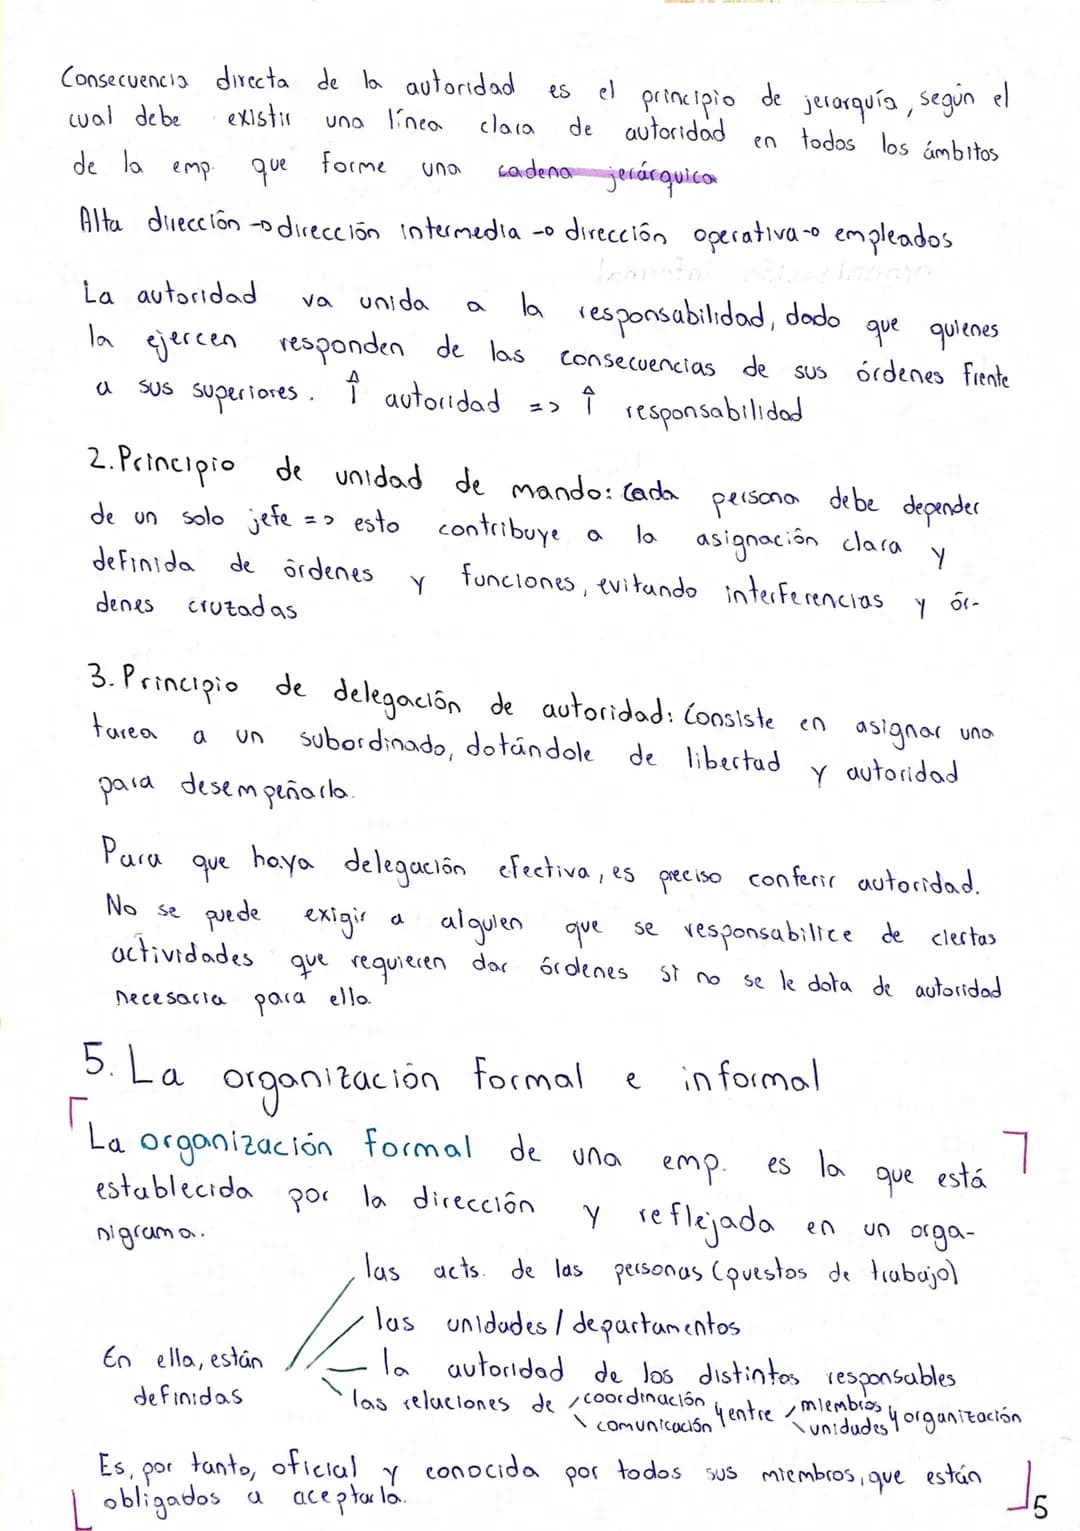 Consecuencia directa de la autoridad es el principio de jerarquía, según el
cual debe existir una línea clara de autoridad en todos los ámbitos
de la emp. que forme una cadena jerárquica
Alta dirección → dirección intermedia → dirección operativa → empleados
La autoridad va unida a la responsabilidad, dado que quienes
la ejercen responden de las consecuencias de sus órdenes frente
a sus superiores. ⇑ autoridad => ⇑ responsabilidad
2. Principio de unidad de mando: Cada persona debe depender
de un solo jefe => esto contribuye a la asignación clara y
definida de órdenes y funciones, evitando interferencias y ór-
denes cruzadas
3. Principio de delegación de autoridad: Consiste en asignar una
tarea a un subordinado, dotándole de libertad y autoridad
para desempeñarla.
Para que haya delegación efectiva, es preciso conferir autoridad.
No se puede exigir a alguien que se responsabilice de ciertas
actividades que requieren dar órdenes si no se le dota de autoridad
necesaria para ello.
5. La organización formal e informal
La organización formal de una emp. es la que está
establecida por la dirección y reflejada en un orga-
nigrama.
En ella, están
definidas
las acts. de las personas (puestos de trabajo)
las unidades / departamentos
la autoridad de los distintos responsables
las relaciones de coordinación y entre miembros y organización
comunicación unidades
Es, por tanto, oficial y conocida por todos sus miembros, que están
obligados a aceptarla.
5